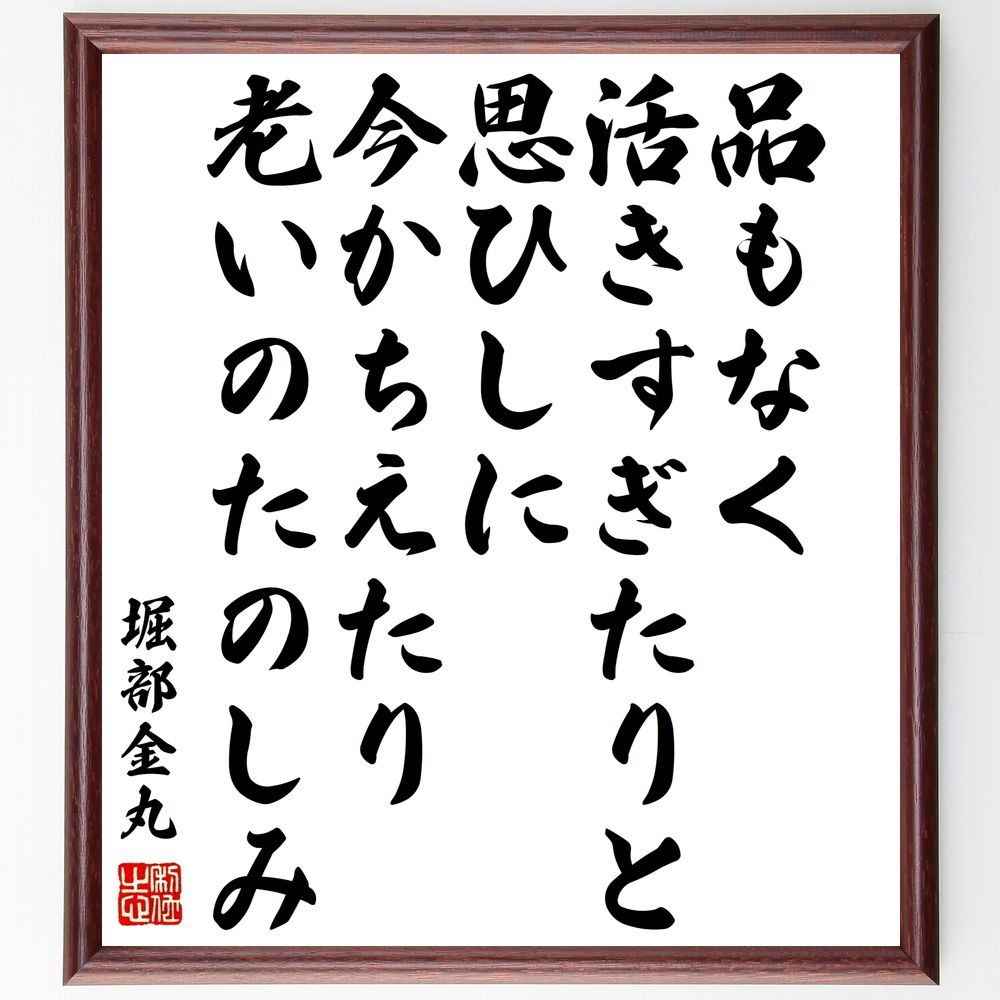 品もなく
活きすぎたりと
思ひしに
今かちえたり
老いのたのしみ
堀部金丸